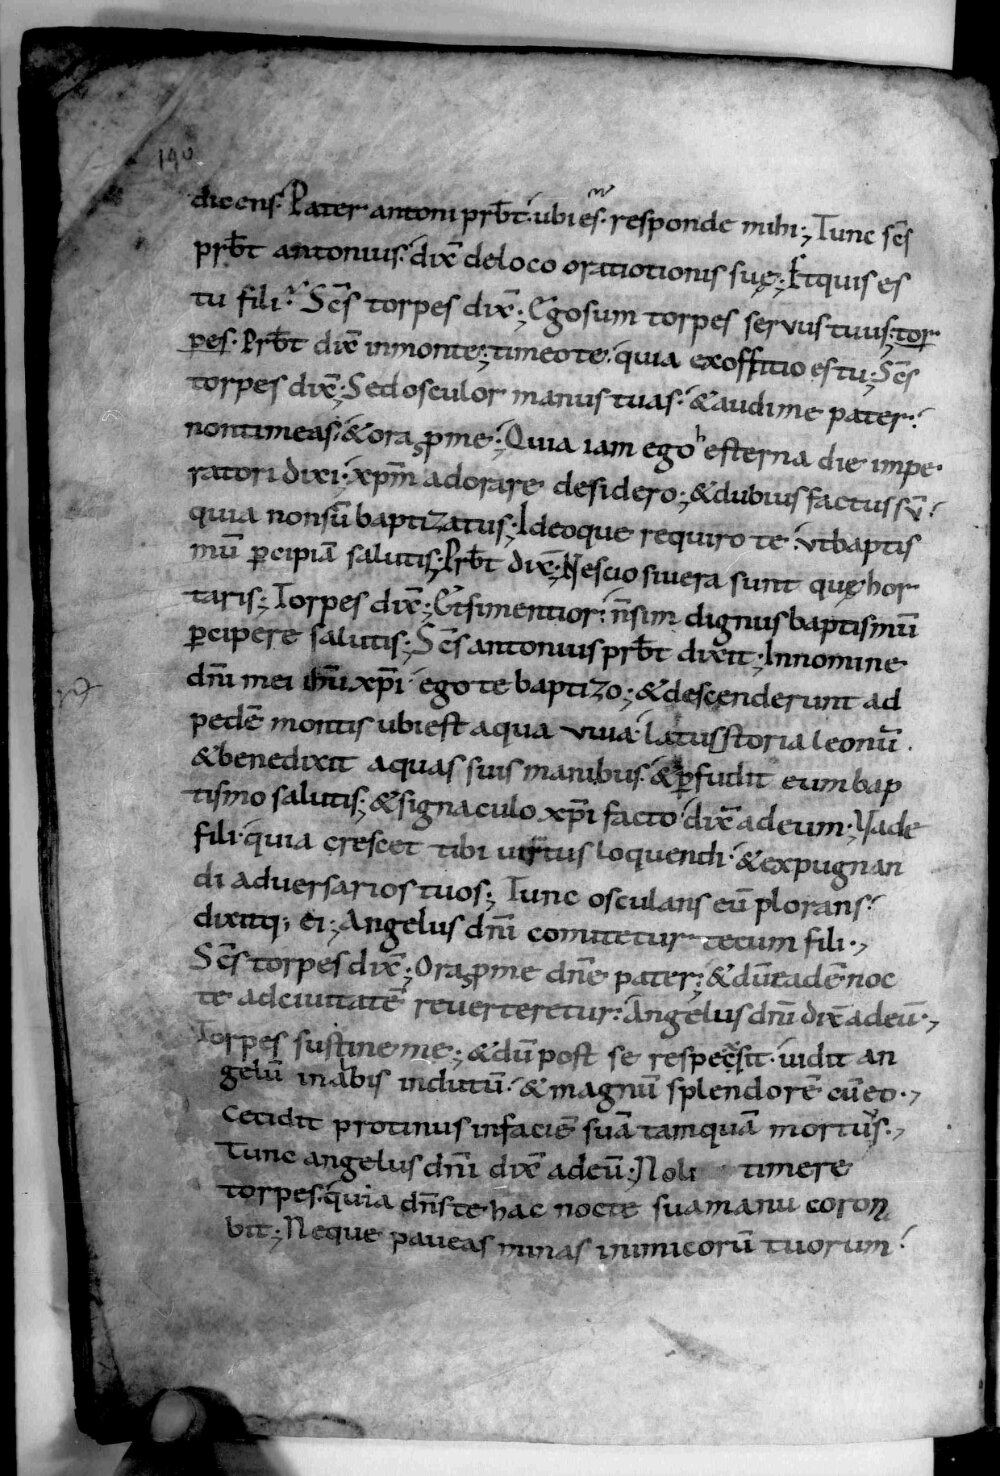 190
dicens· Pater antoni prƀt· ubi es̄· responde mihi; Tunc scs̄
prƀt antonius· dix̄ de loco oratiotionis suę; Et quis es
tu fili· Scs̄ torpes dix̄; Ego sum torpes servus tuus; tor
pes· Prƀt dix̄ in monte; timeo te· quia ex offitio es tu; Scs̄
torpes dix̄; Sed osculor manus tuas· & audi me pater·
non timeas· & ora ꝓ me; Quia iam ego hesterna die impe
ratori dixi· xp̄m adorare desidero; & dubius factus sū·
quia non sū baptizatus; Ideoque requiro te· ut baptis
mū ꝑcipiā salutis; Prƀt dix̄; Nescio si vera sunt quę hor
taris; Torpes dix̄; Et si mentior· n̄ sim dignus baptismū
ꝑcipere salutis; Scs̄ antonius prƀt dixit; In nomine
dn̄i mei ihū xp̄i ego te baptizo; & descenderunt ad
pedē montis ubi est aqua viva· latus storia leonū·
& benedixit aquas suis manibus· & ꝑfudit eum bap
tismo salutis; & signaculo xp̄i facto· dix̄ ad eum; Vade
fili· quia crescet tibi virtus loquendi· & expugnan
di adversarios tuos; Tunc osculans eū plorans·
dixitq; ei; Angelus dn̄i comitetur tecum fili·,
Scs̄ torpes dix̄; Ora ꝓ me dn̄e pater; & dū eadē noc
te ad civitatē reverteretur· Angelus dn̄i dix̄ ad eū·,
Torpes sustine me; & dū post se respexsit· vidit an
gelū in albis indutū· & magnū splendorē cū eo·,
Cecidit protinus in faciē suā tamquā mortuus·,
Tunc angelus dn̄i dix̄ ad eū· Noli timere
torpes· quia dn̄s te hac nocte sua manu coron
bit; Neque paveas minas inimicorū tuorum·